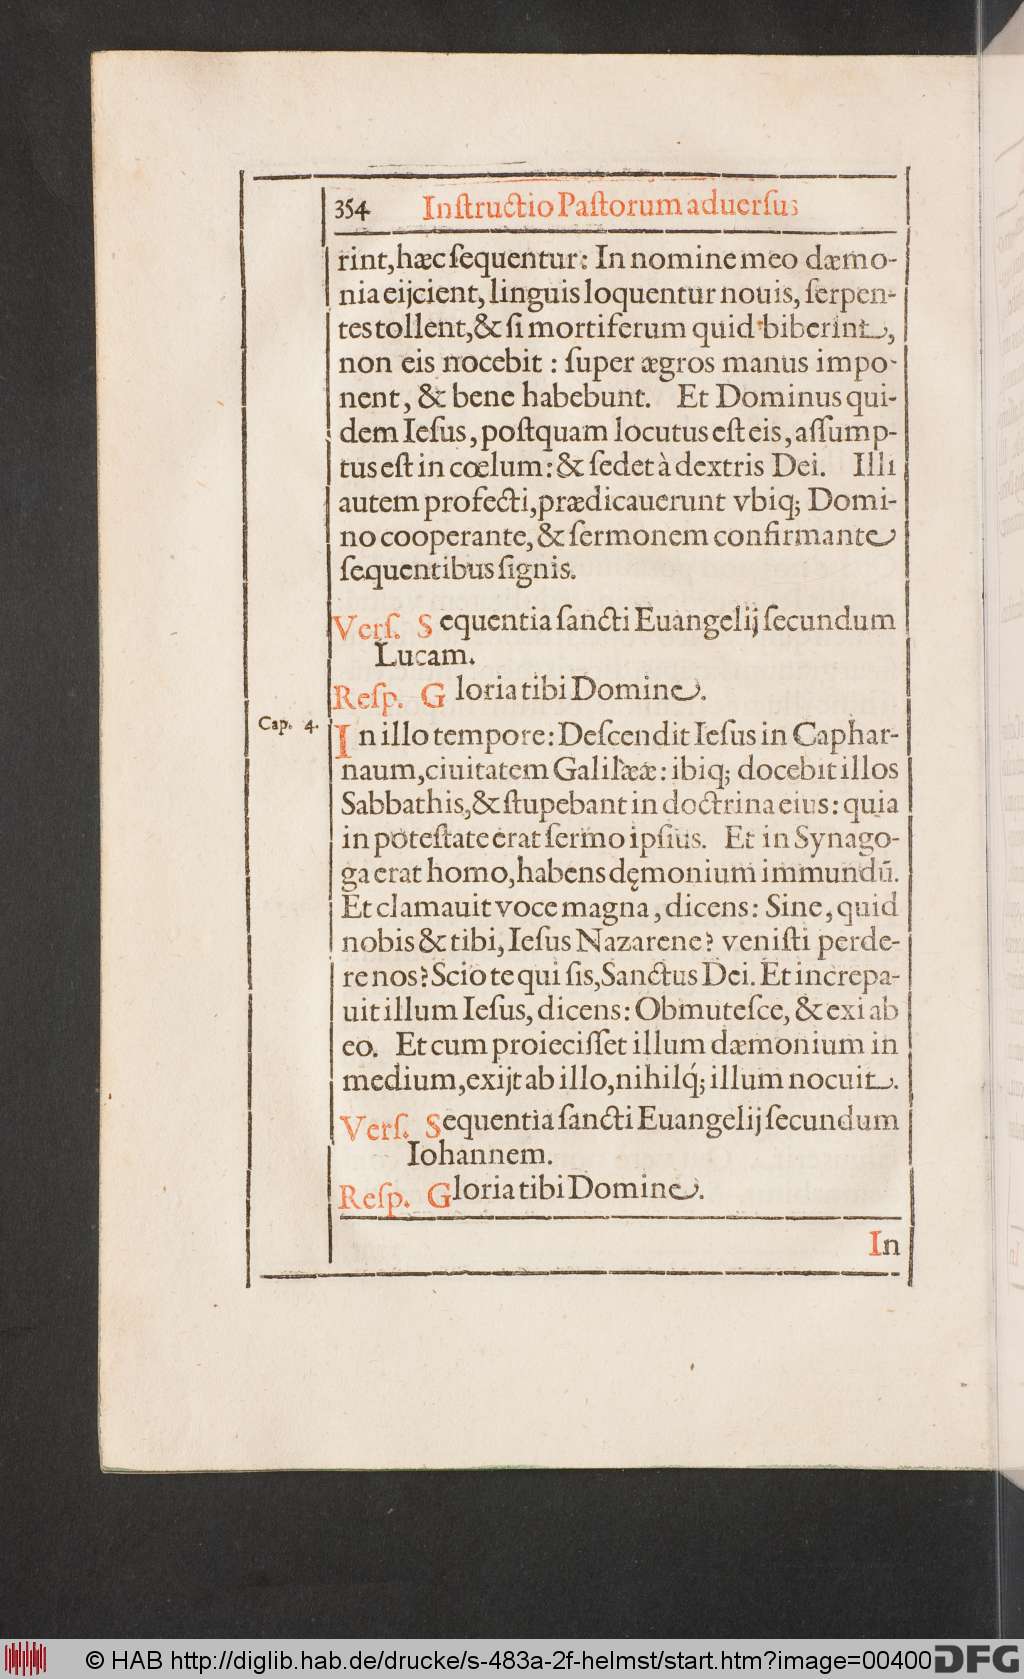 354 Inſtructio Paſtorum aduerſus
rint, hæc ſequentur: In nomine meo dæmo-
nia eijcient, linguis loquentur nouis, ſerpen-
tes tollent, & ſi mortiferum quid biberint,
non eis nocebit : ſuper ægros manus impo-
nent, & bene habebunt. Et Dominus qui-
dem Ieſus, poſtquam locutus eſt eis, aſſump-
tus eſt in cœlum: & ſedet à dextris Dei. Illi
autem profecti, prædicauerunt vbiq; Domi-
no cooperante, & ſermonem confirmante
ſequentibus ſignis.
Verſ. Sequentia ſancti Euangelij ſecundum
Lucam.
Reſp. Gloria tibi Domine.
Cap. 4. In illo tempore: Deſcendit Ieſus in Caphar-
naum, ciuitatem Galilææ: ibiq; docebit illos
Sabbathis, & ſtupebant in doctrina eius: quia
in poteſtate erat ſermo ipſius. Et in Synago-
ga erat homo, habens dęmonium immundū.
Et clamauit voce magna, dicens: Sine, quid
nobis & tibi, Ieſus Nazarene? veniſti perde-
re nos? Scio te qui ſis, Sanctus Dei. Et increpa-
uit illum Ieſus, dicens: Obmuteſce, & exi ab
eo. Et cum proieciſſet illum dæmonium in
medium, exijt ab illo, nihilq́; illum nocuit.
Verſ. Sequentia ſancti Euangelij ſecundum
Iohannem.
Reſp. Gloria tibi Domine.
In
© HAB http://diglib.hab.de/drucke/s-483a-2f-helmst/start.htm?image=00400 DFG